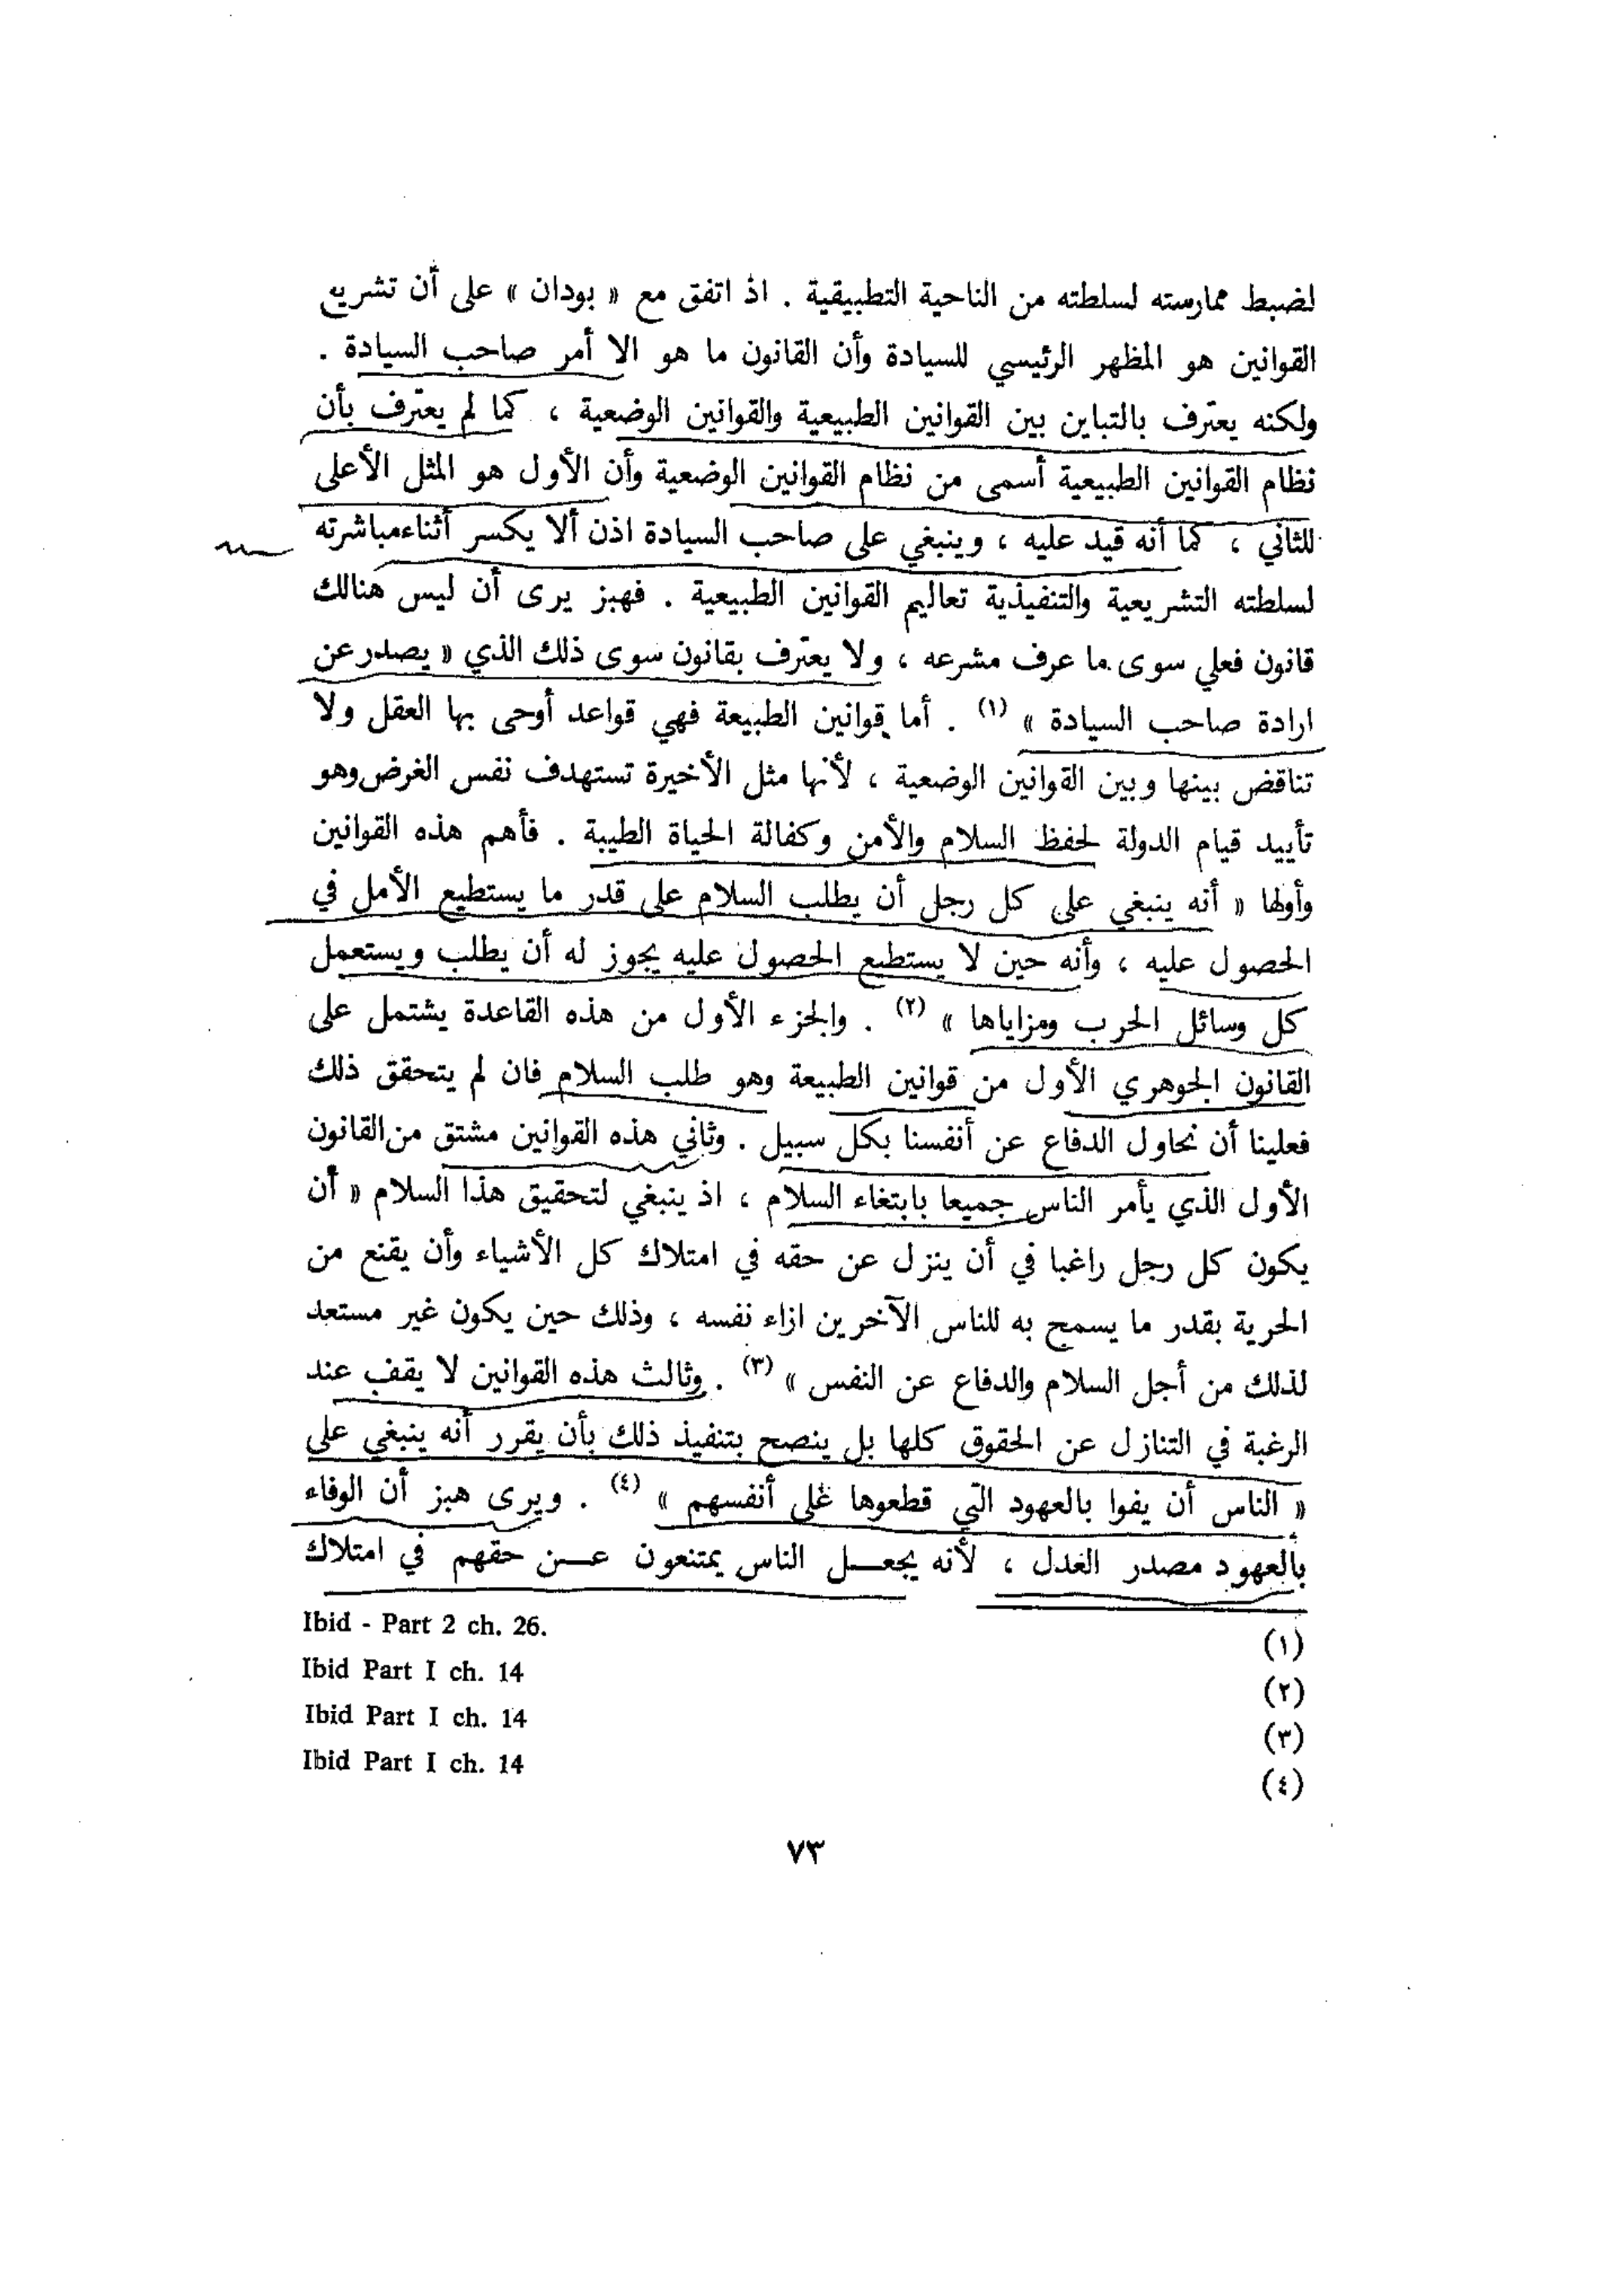 لضبط ممارسته لسلطته من الناحية التطبيقية . اذ اتفق مع « بودان » على أن تشريع
القوانين هو المظهر الرئيسي للسيادة وأن القانون ما هو الا أمر صاحب السيادة .
ولكنه يعترف بالتباين بين القوانين الطبيعية والقوانين الوضعية ، كما لم يعترف بأن
نظام القوانين الطبيعية أسمى من نظام القوانين الوضعية وأن الأول هو المثل الأعلى
للثاني ، كما أنه قيد عليه ، وينبغي على صاحب السيادة اذن ألا يكسر أثناء مباشرته
لسلطته التشريعية والتنفيذية تعاليم القوانين الطبيعية . فهبز يرى أن ليس هنالك
قانون فعلي سوى ما عرف مشرعه ، ولا يعترف بقانون سوى ذلك الذي « يصدر عن
ارادة صاحب السيادة » (١) . أما قوانين الطبيعة فهي قواعد أوحى بها العقل ولا
تناقض بينها وبين القوانين الوضعية ، لأنها مثل الأخيرة تستهدف نفس الغرض وهو
تأييد قيام الدولة لحفظ السلام والأمن وكفالة الحياة الطيبة . فأهم هذه القوانين
وأولها « أنه ينبغي على كل رجل أن يطلب السلام على قدر ما يستطيع الأمل في
الحصول عليه ، وأنه حين لا يستطيع الحصول عليه يجوز له أن يطلب ويستعمل
كل وسائل الحرب ومزاياها » (٢) . والجزء الأول من هذه القاعدة يشتمل على
القانون الجوهري الأول من قوانين الطبيعة وهو طلب السلام فان لم يتحقق ذلك
فعلينا أن نحاول الدفاع عن أنفسنا بكل سبيل . وثاني هذه القوانين مشتق من القانون
الأول الذي يأمر الناس جميعا بابتغاء السلام ، اذ ينبغي لتحقيق هذا السلام « أن
يكون كل رجل راغبا في أن ينزل عن حقه في امتلاك كل الأشياء وأن يقنع من
الحرية بقدر ما يسمح به للناس الآخرين ازاء نفسه ، وذلك حين يكون غير مستعد
لذلك من أجل السلام والدفاع عن النفس » (٣) . وثالث هذه القوانين لا يقف عند
الرغبة في التنازل عن الحقوق كلها بل ينصح بتنفيذ ذلك بأن يقرر أنه ينبغي على
« الناس أن يفوا بالعهود التي قطعوها على أنفسهم » (٤) . ويرى هبز أن الوفاء
بالعهود مصدر العدل ، لأنه يجعل الناس يمتنعون عن حقهم في امتلاك
(١) Ibid - Part 2 ch. 26.
(٢) Ibid Part I ch. 14
(٣) Ibid Part I ch. 14
(٤) Ibid Part I ch. 14
٧٣